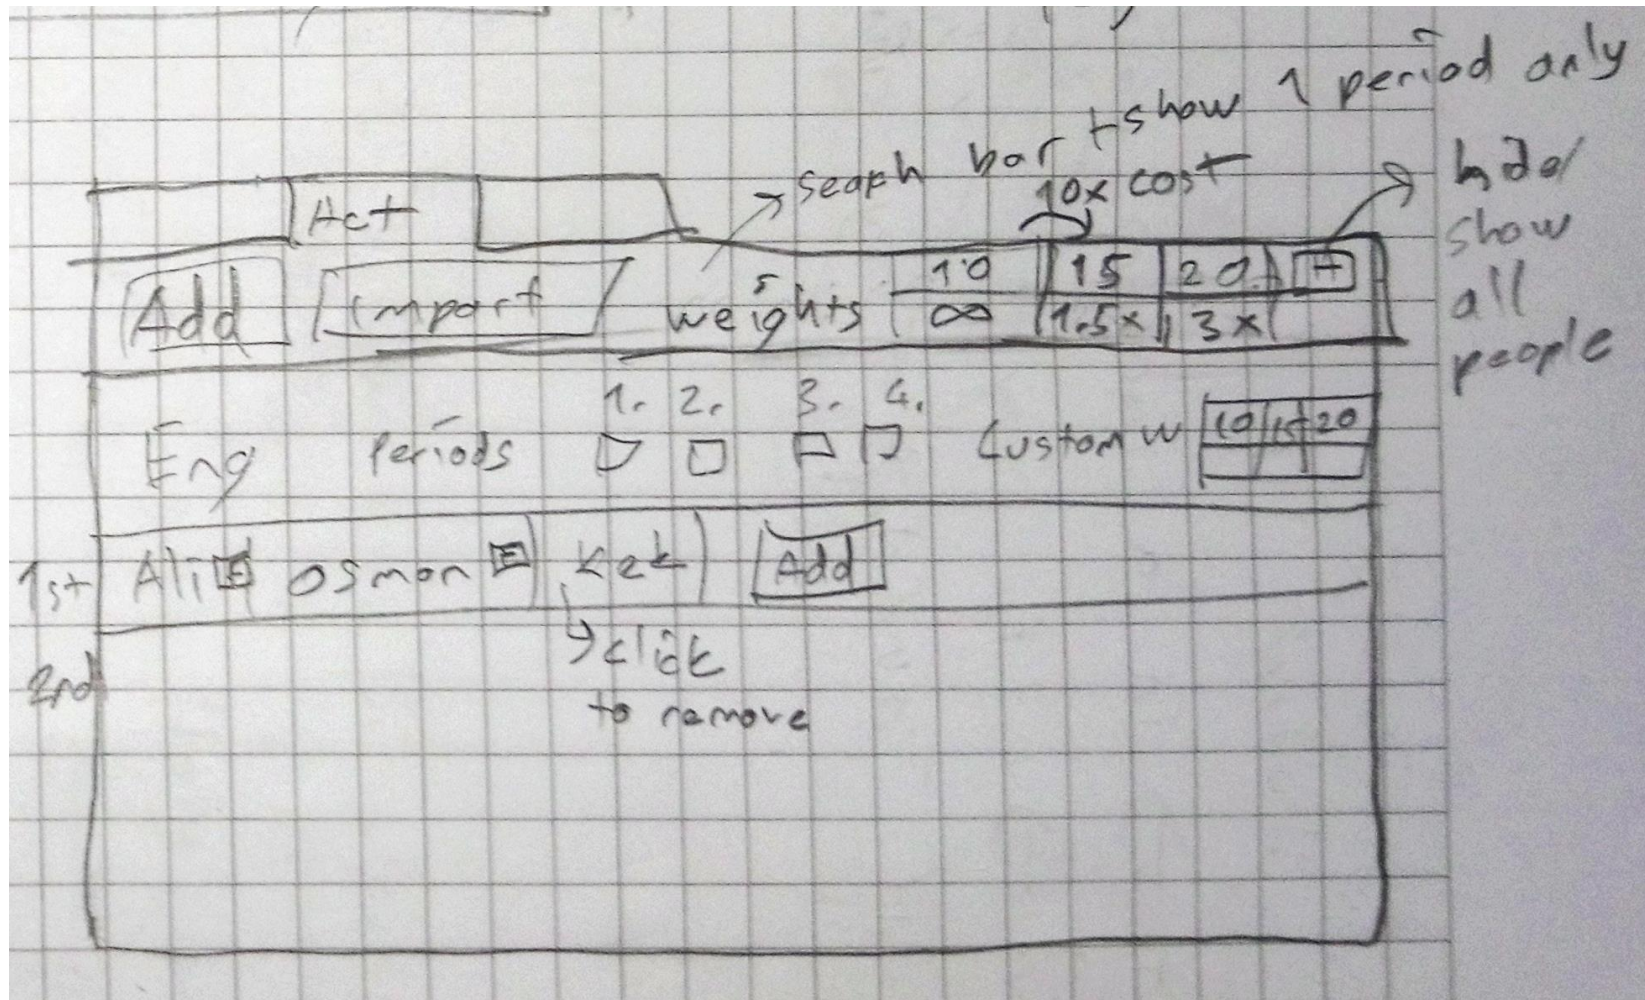 seach bar + show 1 period only
10x cost
show
all
people
Act
Add Import weights 10 15 20 +
∞ 1.5x 3x
1. 2. 3. 4.
Eng Periods Custom W 10 15 20
1st Ali E Osman E Kek Add
click
to remove
2nd